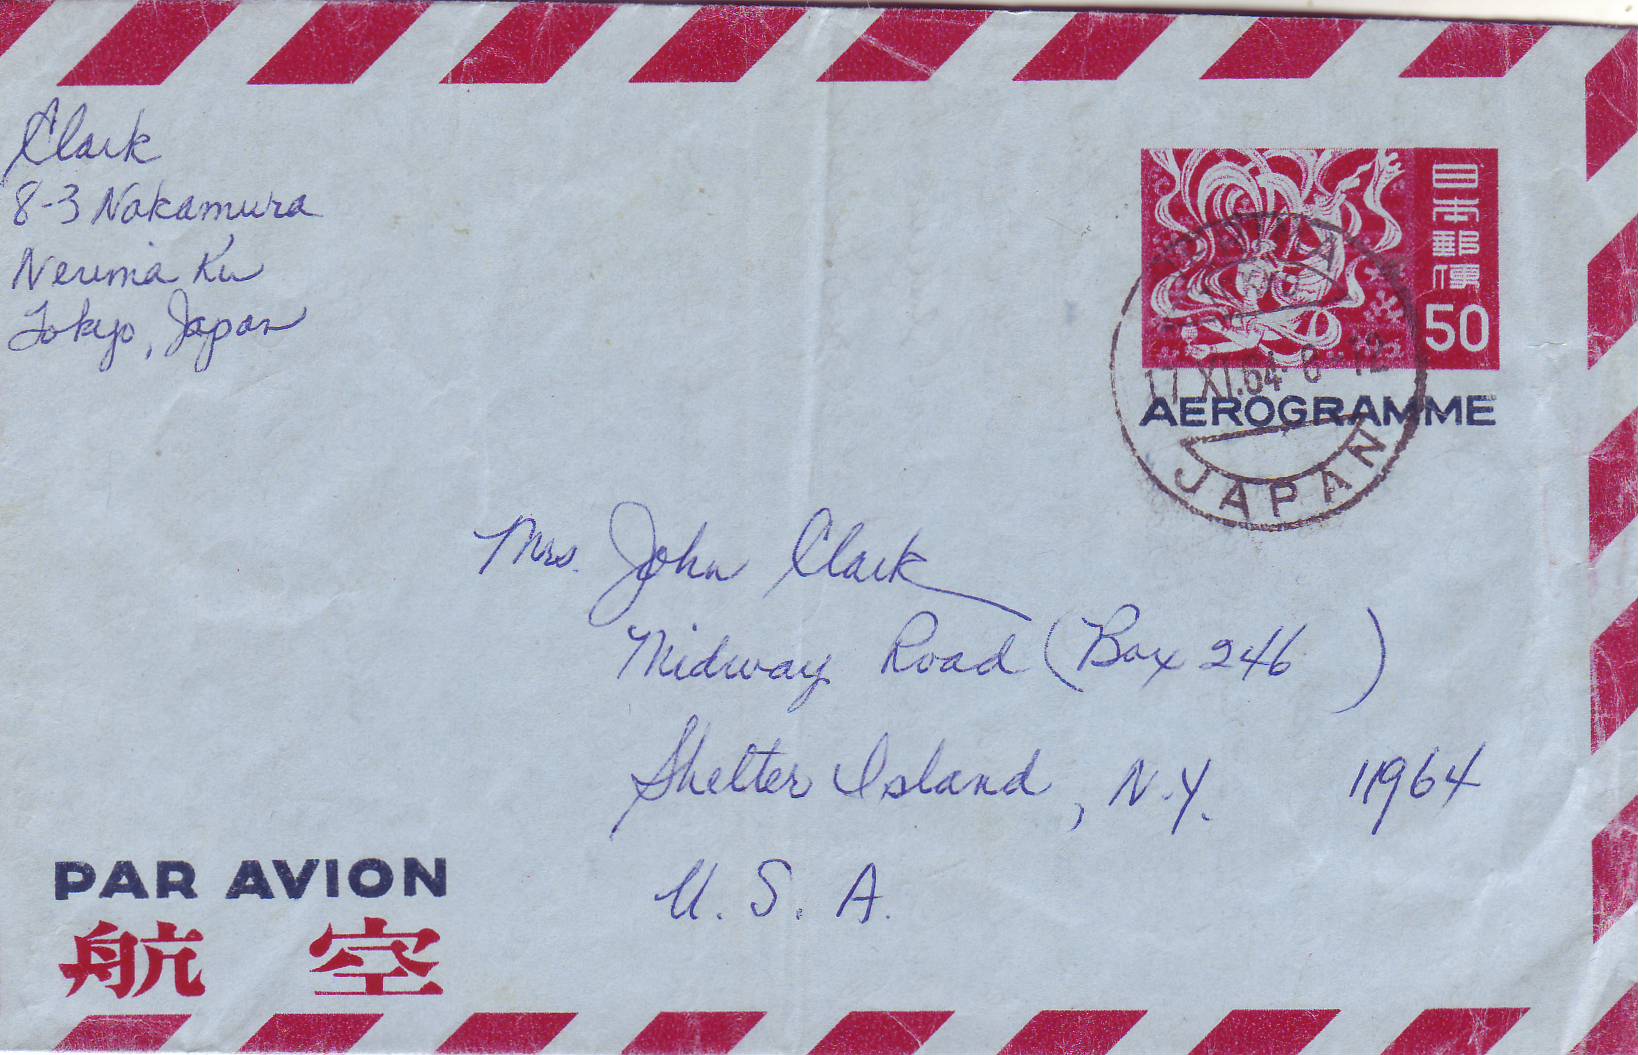 Clark
8-3 Nakamura
Nerima Ku
Tokyo, Japan
日本郵便
50
17.XI.64 8-12
AEROGRAMME
JAPAN
Mrs. John Clark
Midway Road (Box 246 )
Shelter Island, N.Y. 11964
U. S. A.
PAR AVION
航空